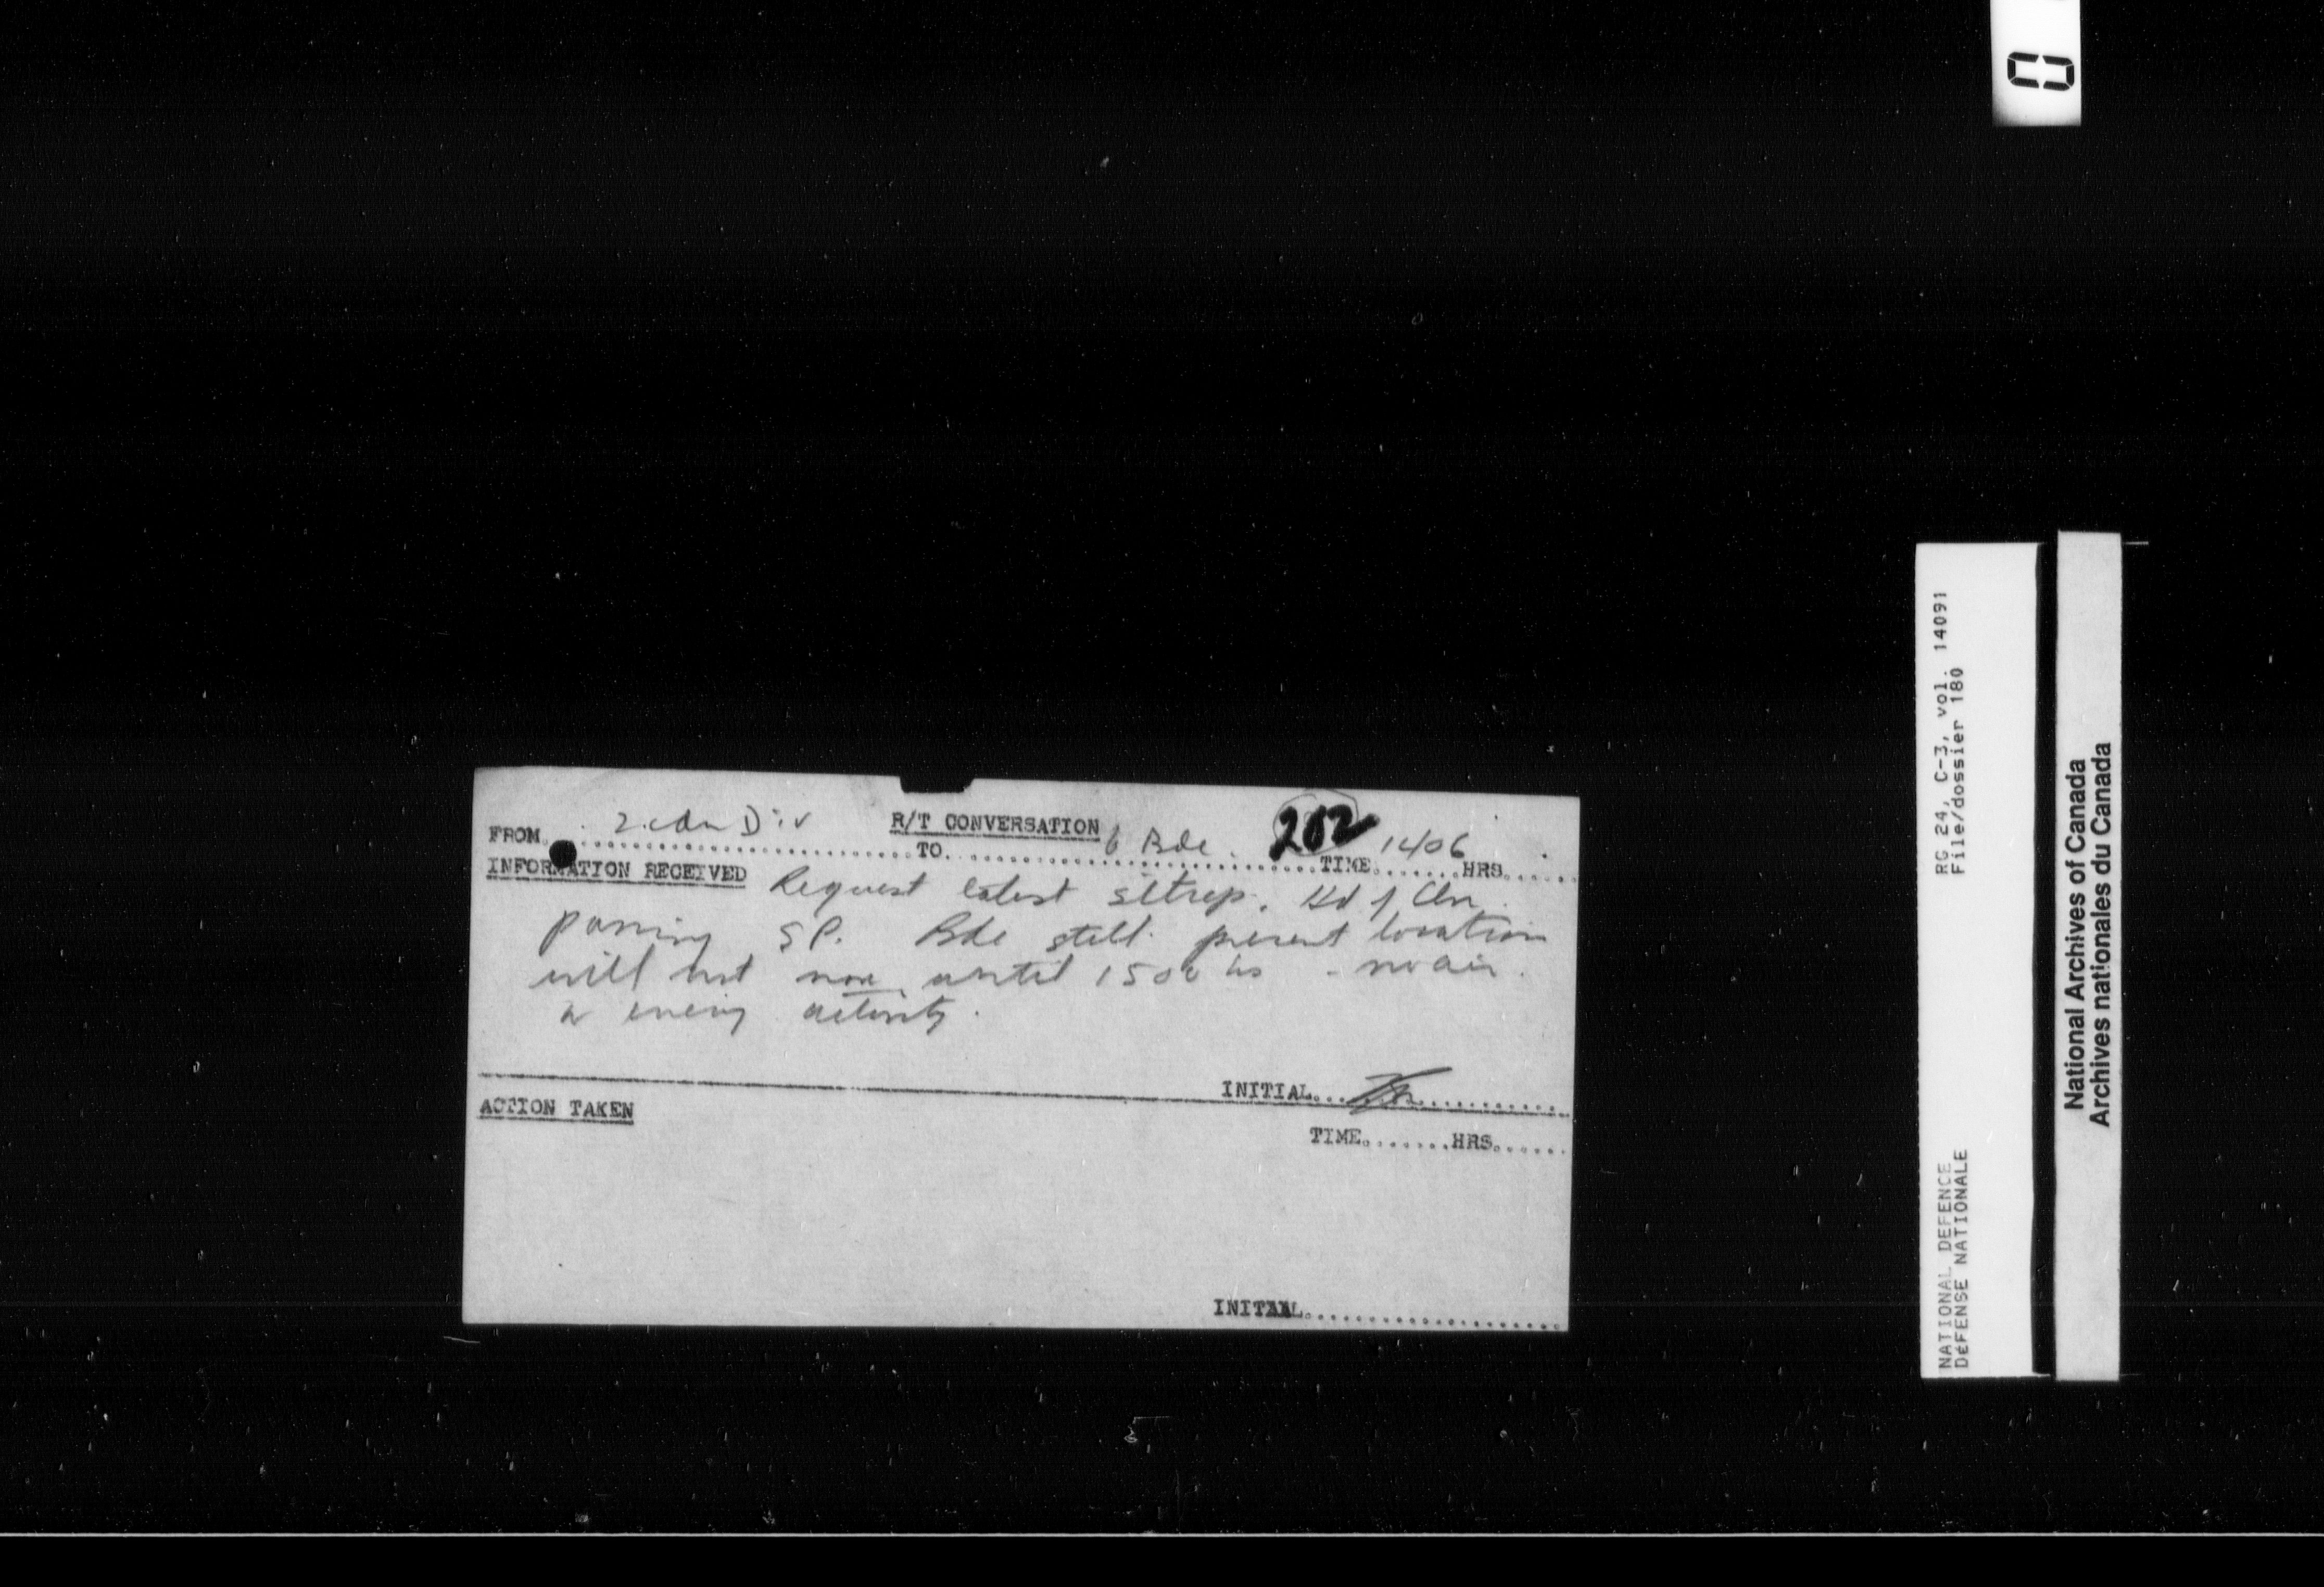 R/T CONVERSATION
202
FROM 2 Cdn Div TO 6 Bde. TIME 1406 HRS
INFORMATION RECEIVED Request latest sitrep. Hd of Cln
passing SP. Bde still present location
will not move until 1500 hrs - no air
or enemy activity.
INITIAL
ACTION TAKEN
TIME HRS
INITIAL
RG 24, C-3, vol. 14091
File/dossier 180
NATIONAL DEFENCE
DÉFENSE NATIONALE
National Archives of Canada
Archives nationales du Canada